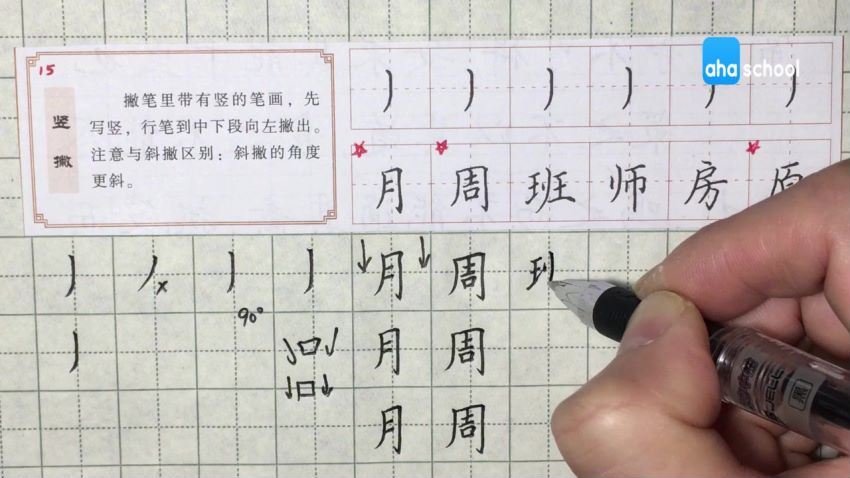 aha school
15
竖撇
撇笔里带有竖的笔画，先
写竖，行笔到中下段向左撇出。
注意与斜撇区别：斜撇的角度
更斜。
丿 丿 丿 丿 丿 丿
月 周 班 师 房 原
丿 丿 × 丿 丿 月 周
丿 90° 口 月 周
口
月 周